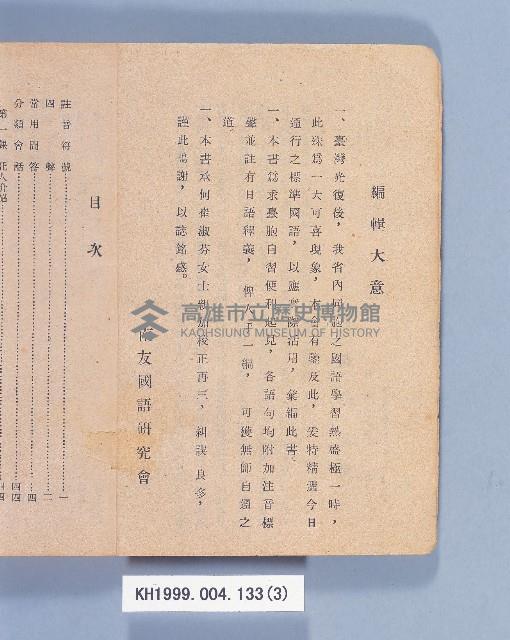 編輯大意
一、臺灣光復後，我省內同胞之國語學習熱盛極一時，
此殊為一大可喜現象，本會有鑒及此，爰特精選今日
通行之標準國語，以應實際活用，彙編此書。
一、本書為求臺胞自習便利起見，各語句均附加注音標
並註有日語釋義，俾人手一編，可獲無師自通之
道。
一、本書承何崔淑芬女士親加校正再三，糾誤良多，
謹此鳴謝，以誌銘感。
友國語硏究會
目次
註音符號 一
四聲 二
常用問答 四
分類會話 四
第一課
高雄市立歷史博物館
KAOHSIUNG MUSEUM OF HISTORY
KH1999.004.133(3)